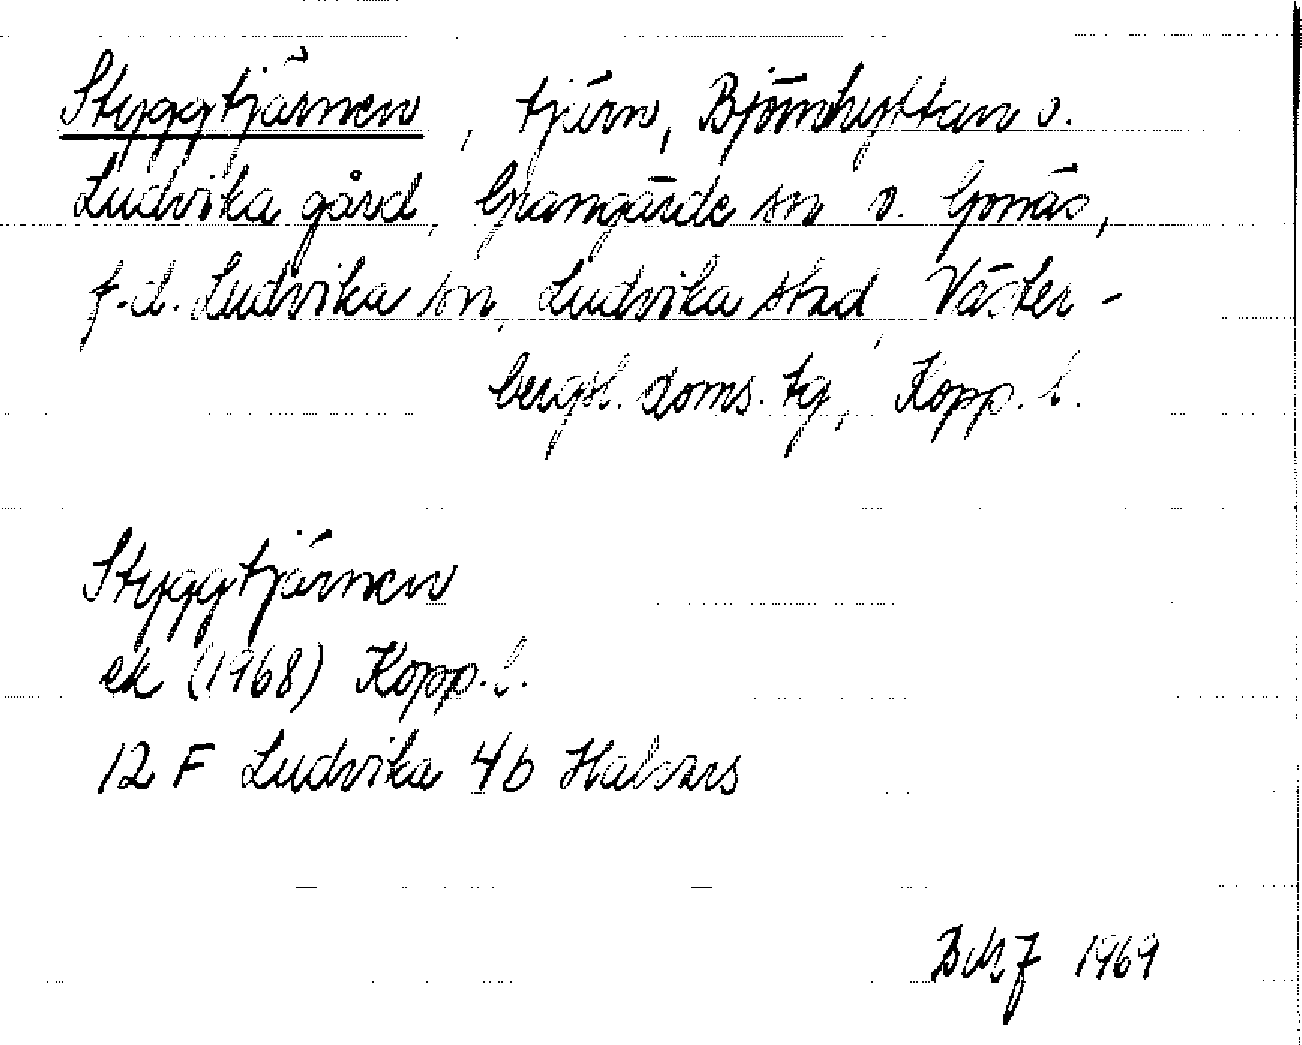 Styggtjärnen, tjärn, Björnhyttan o.
Ludvika gård, Grangärde sn o. Gonäs,
f.d. Ludvika sn, Ludvika stad, Väster-
bergsl. doms. tg, Kopp. l.
Styggtjärnen
ek (1968) Kopp. l.
12 F Ludvika 4b Halvars
BMJ 1969